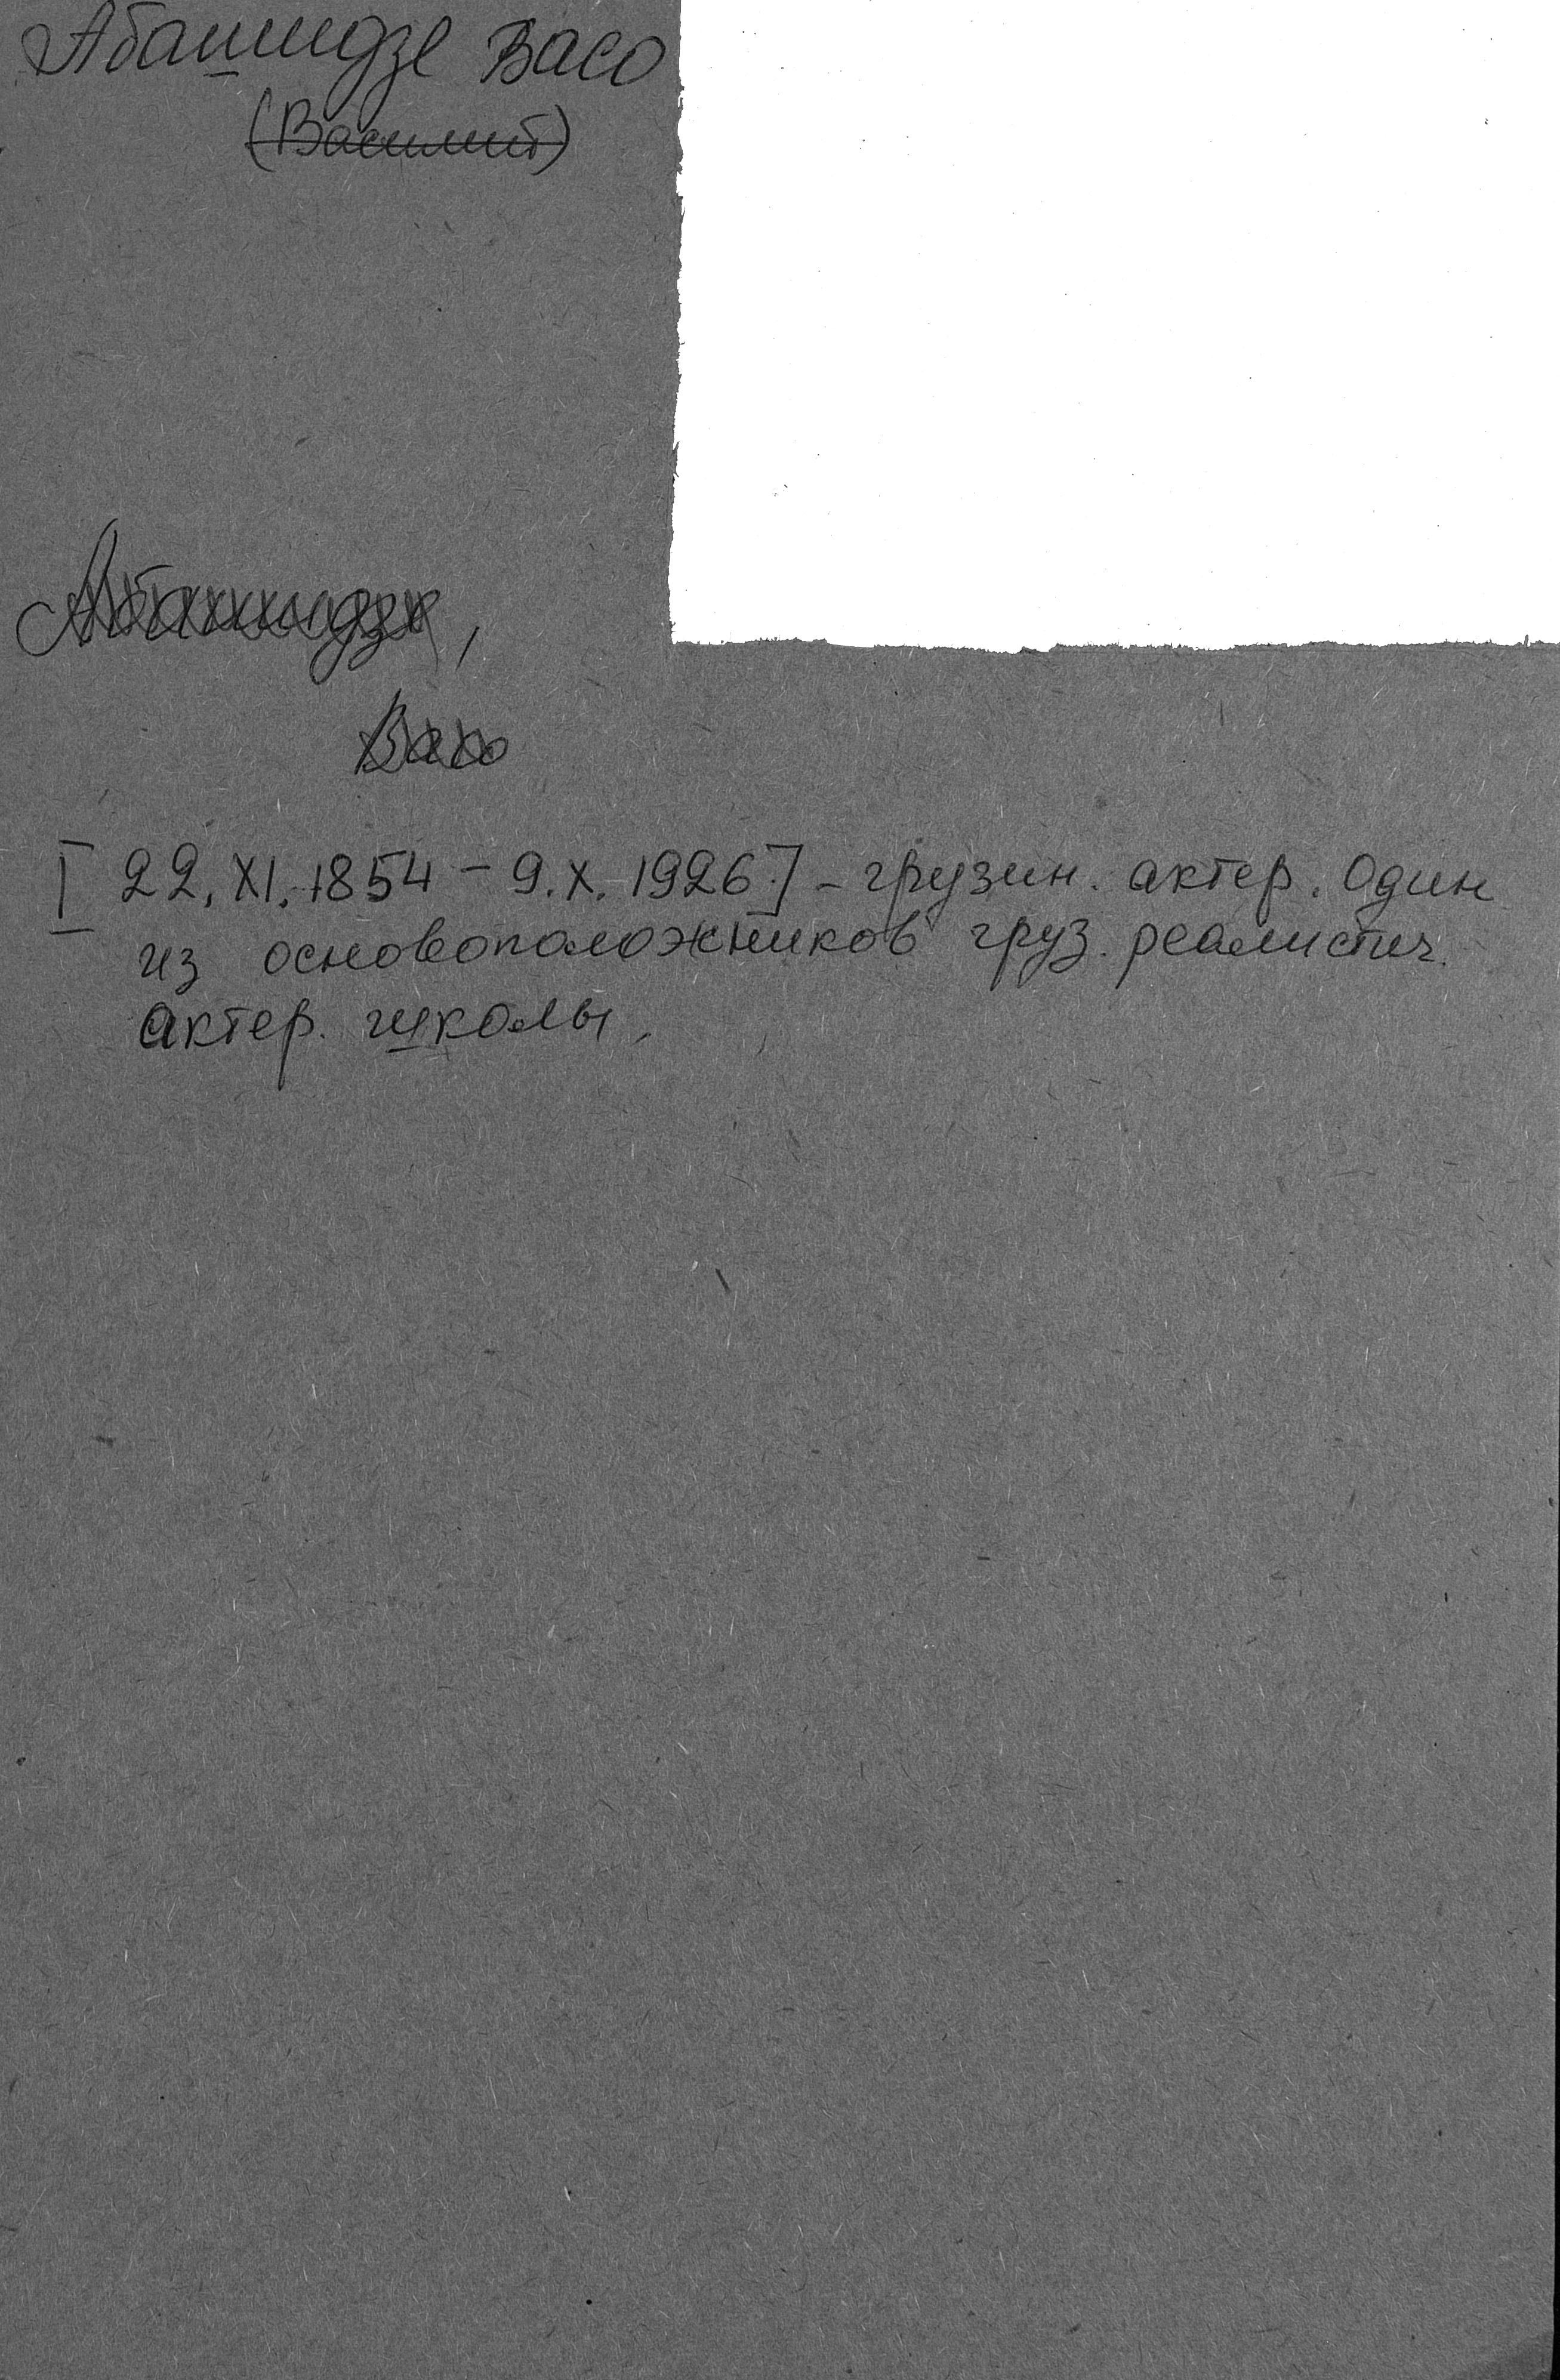 Абашидзе Васо
(Василий)
Абашидзе,
Васо
[22.XI.1854 – 9.X.1926] – грузин. актер. Один
из основоположников груз. реалистич.
актер. школы.